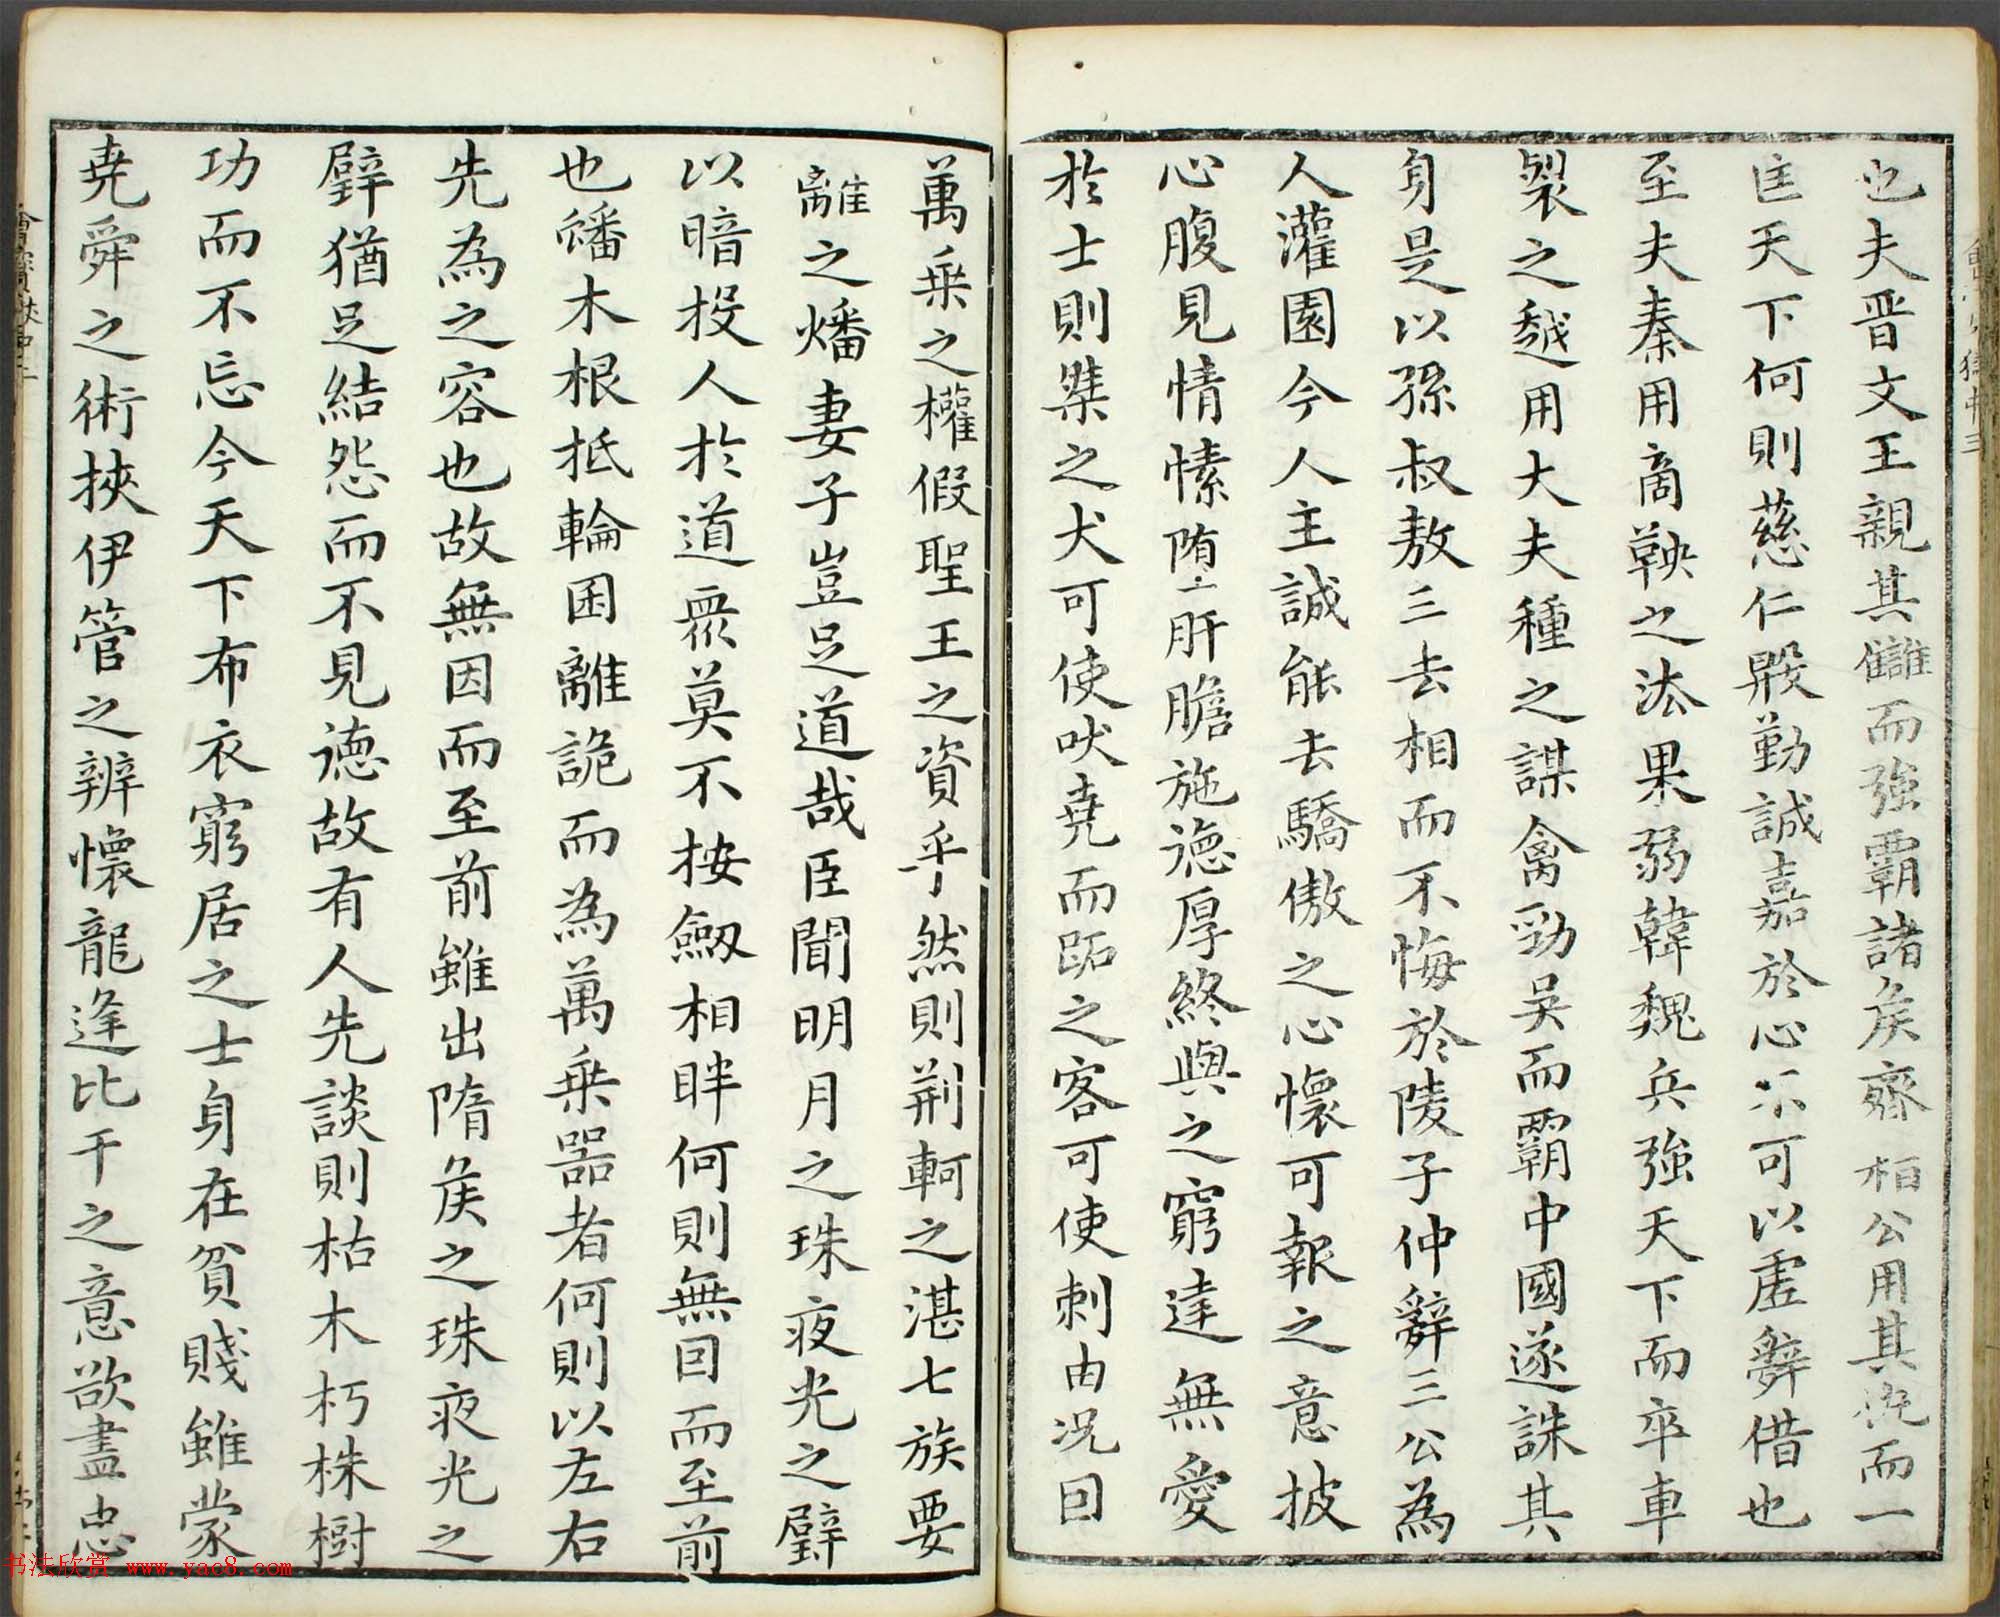 也夫晋文王親其讎而強霸諸矦齊桓公用其仇而一
匡天下何則慈仁殷勤誠嘉於心不可以虛辭借也
至夫秦用商鞅之法果弱韓魏兵強天下而卒車
裂之越用大夫種之謀禽勁吳而霸中國遂誅其
身是以孫叔敖三去相而不悔於陵子仲辭三公為
人灌園今人主誠能去驕傲之心懷可報之意披
心腹見情愫墮肝膽施德厚終與之窮達無愛
於士則桀之犬可使吠堯而跖之客可使刺由況因
萬乗之權假聖王之資乎然則荆軻之湛七族要
離之燔妻子豈足道哉臣聞明月之珠夜光之璧
以暗投人於道衆莫不按劒相眄何則無因而至前
也蟠木根柢輪囷離詭而為萬乗器者何則以左右
先為之容也故無因而至前雖出隋矦之珠夜光之
璧猶足結怨而不見德故有人先談則枯木朽株樹
功而不忘今天下布衣窮居之士身在貧賤雖蒙
堯舜之術挾伊管之辨懷龍逢比干之意欲盡忠
书法欣赏 www.yac8.com